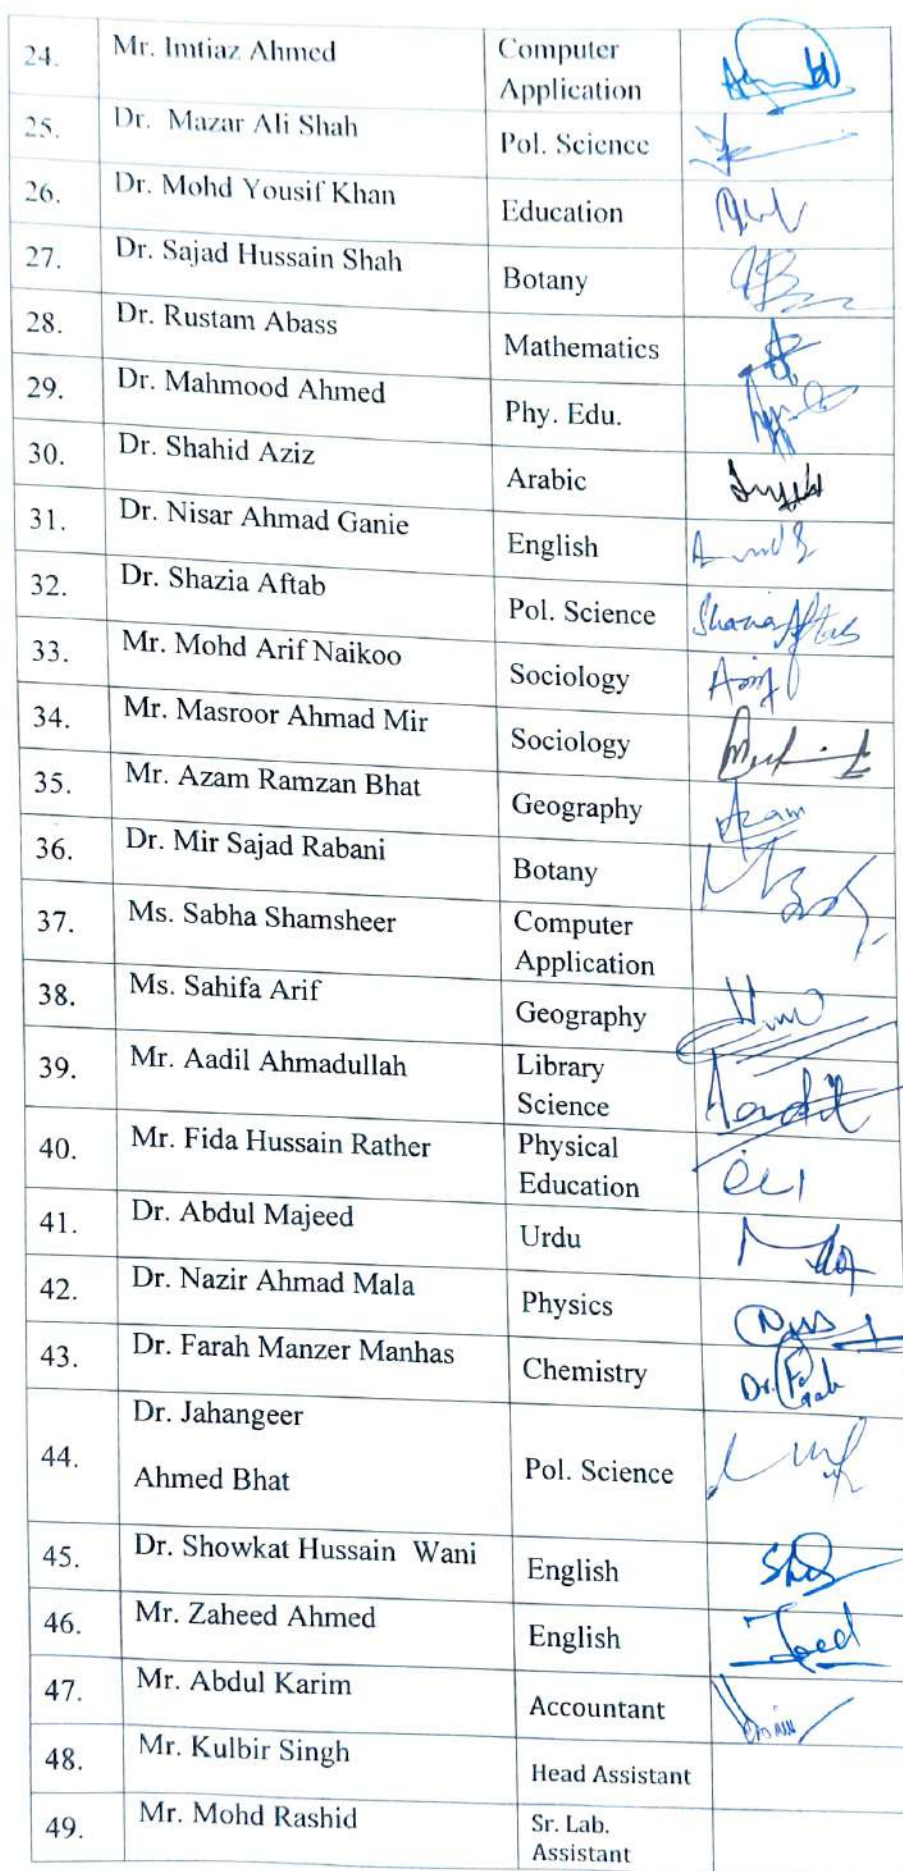 24. Mr. Imtiaz Ahmed Computer
Application
25. Dr. Mazar Ali Shah Pol. Science
26. Dr. Mohd Yousif Khan Education
27. Dr. Sajad Hussain Shah Botany
28. Dr. Rustam Abass Mathematics
29. Dr. Mahmood Ahmed Phy. Edu.
30. Dr. Shahid Aziz Arabic
31. Dr. Nisar Ahmad Ganie English
32. Dr. Shazia Aftab Pol. Science Shazia Aftab
33. Mr. Mohd Arif Naikoo Sociology Arif
34. Mr. Masroor Ahmad Mir Sociology
35. Mr. Azam Ramzan Bhat Geography Azam
36. Dr. Mir Sajad Rabani Botany
37. Ms. Sabha Shamsheer Computer
Application
38. Ms. Sahifa Arif Geography
39. Mr. Aadil Ahmadullah Library
Science
40. Mr. Fida Hussain Rather Physical
Education
41. Dr. Abdul Majeed Urdu
42. Dr. Nazir Ahmad Mala Physics
43. Dr. Farah Manzer Manhas Chemistry Dr. Farah
Dr. Jahangeer
44. Ahmed Bhat Pol. Science
45. Dr. Showkat Hussain Wani English
46. Mr. Zaheed Ahmed English
47. Mr. Abdul Karim Accountant
48. Mr. Kulbir Singh Head Assistant
49. Mr. Mohd Rashid Sr. Lab.
Assistant